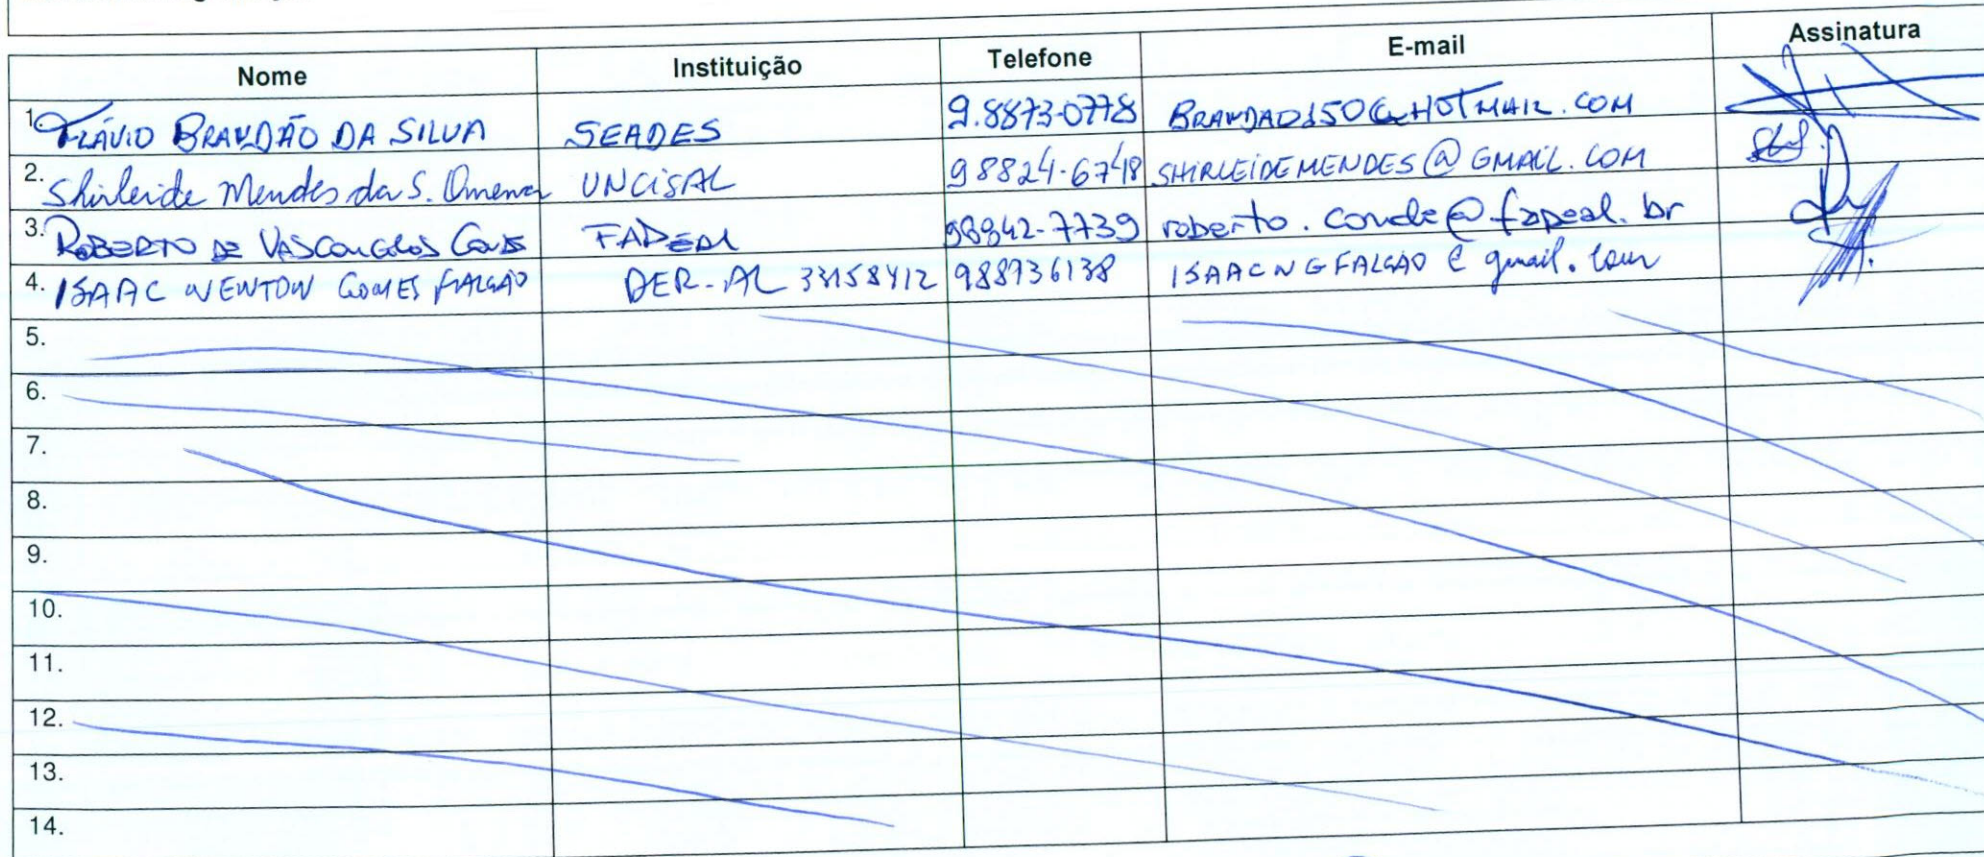 Nome Instituição Telefone E-mail Assinatura
1. FLÁVIO BRANDÃO DA SILVA SEADES 9.8873-0778 BRANDAO150@HOTMAIL.COM
2. Shirleide Mendes da S. Omena UNCISAL 98824-6748 SHIRLEIDEMENDES@GMAIL.COM
3. ROBERTO DE VASCONCELOS FAPEAL 98842-7739 roberto.conde@fapeal.br
4. ISAAC NEWTON GOMES FALCÃO DER-AL 33158412 988736138 ISAACNGFALCAO@gmail.com
5.
6.
7.
8.
9.
10.
11.
12.
13.
14.